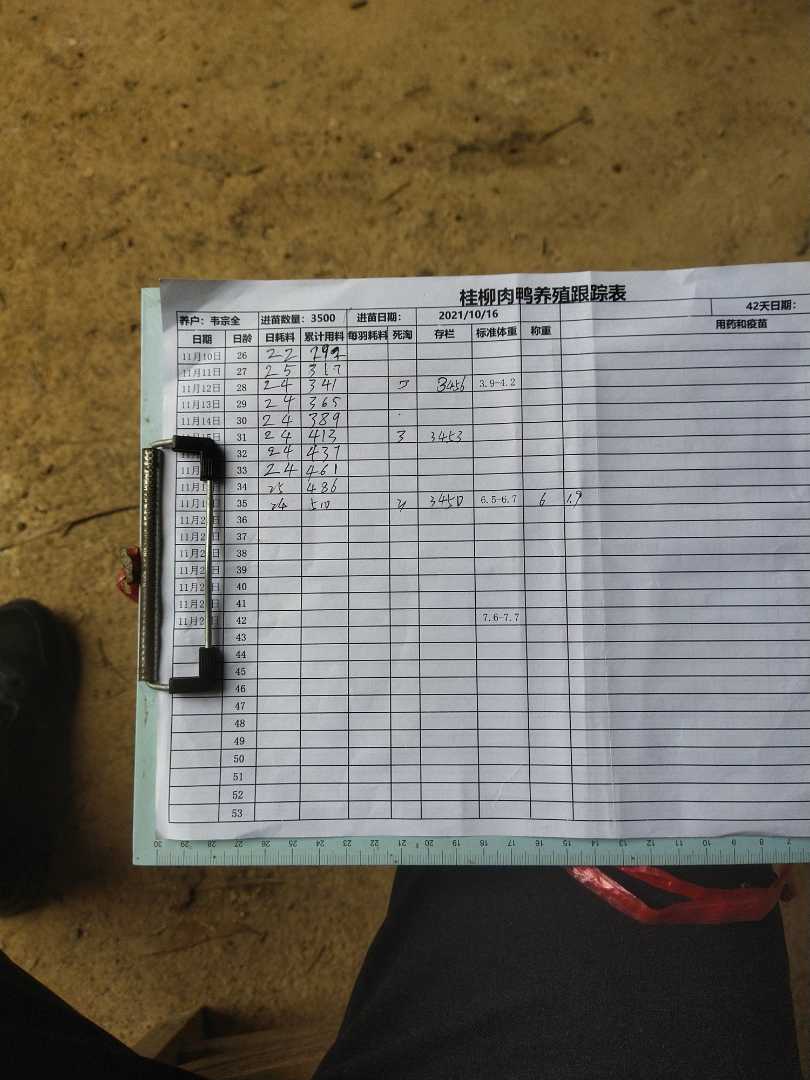 桂柳肉鸭养殖跟踪表
养户：韦宗全 进苗数量：3500 进苗日期： 2021/10/16 42天日期：
日期 日龄 日耗料 累计用料 每羽耗料 死淘 存栏 标准体重 称重 用药和疫苗
11月10日 26 22 292
11月11日 27 25 317
11月12日 28 24 341 3456 3.9-4.2
11月13日 29 24 365
11月14日 30 24 389
11月15日 31 24 413 3 3453
32 24 437
11月 33 24 461
11月1 34 25 486
11月1 日 35 24 510 3450 6.5-6.7 6 1.9
11月2 日 36
11月2 日 37
11月2 日 38
11月2 日 39
11月2 日 40
11月2 日 41
11月2 日 42 7.6-7.7
43
44
45
46
47
48
49
50
51
52
53
30 29 28 27 26 25 24 23 22 21 20 19 18 17 16 15 14 13 12 11 10 9 8 7